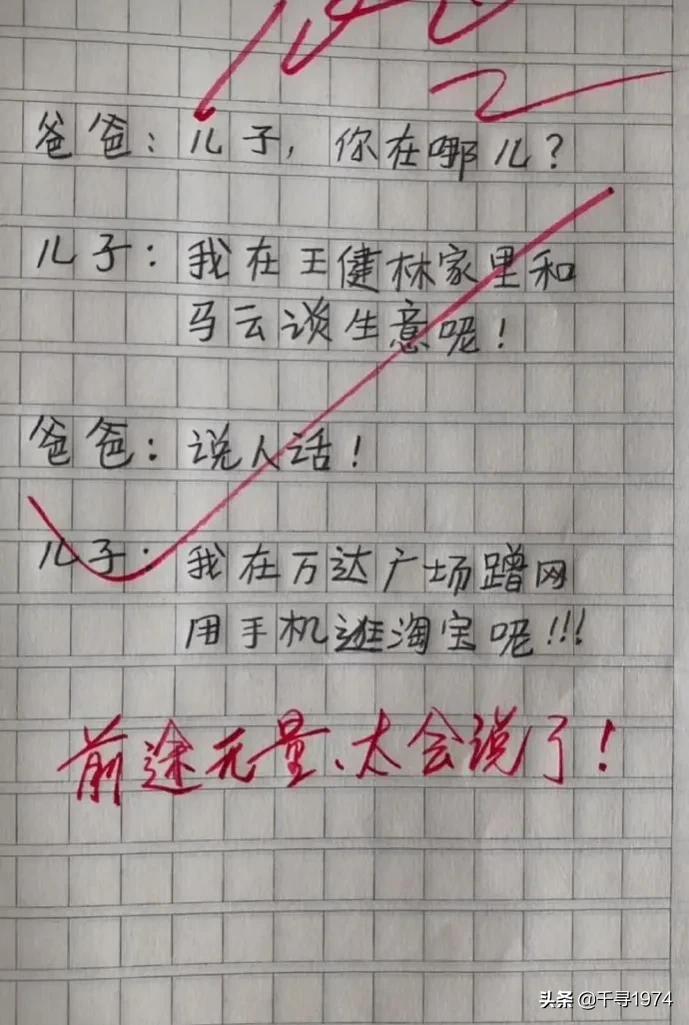 爸爸：儿子，你在哪儿？
儿子：我在王健林家里和
马云谈生意呢！
爸爸：说人话！
儿子：我在万达广场蹭网
用手机逛淘宝呢！！！
前途无量、太会说了！
头条 @千寻1974